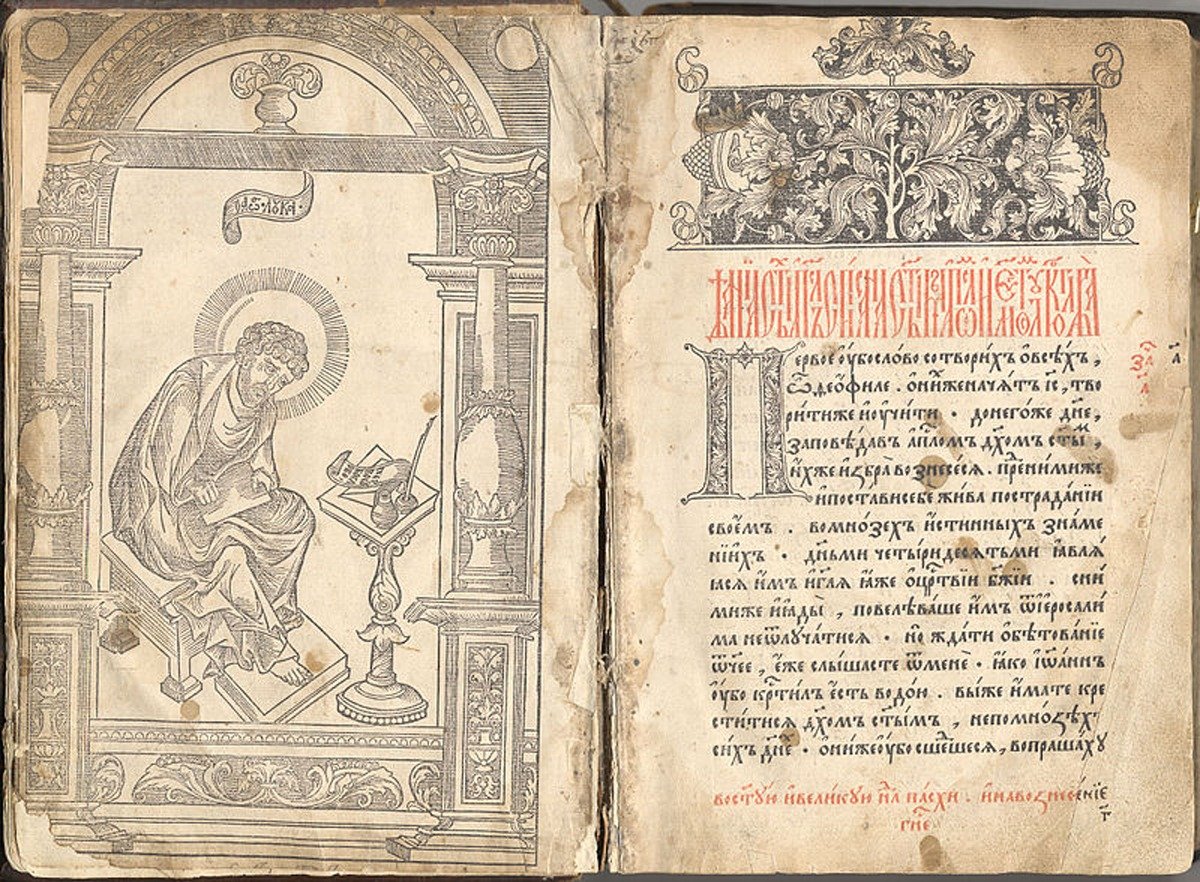 ѻ҆ а҆г҃ . лꙋка .
Первоеѹ҆бословосотвори́хъ ѽвсѣ́хъ ,
ѽ҆ѳео́філе . ѻ҆ни́женача́тъ і҆с҃ , тво
ри́тиже и҆ѹ҆чи́ти . донего́же дн҃е ,
запове́давъ а҆пⷭ҇ломъ дх҃омъ ст҃ыⷨ ,
и҆́хже и҆збра̀ вознесе́сѧ . преⷣни́миже
и҆поста́висебе жи́ва пострада́нїи
свое́мъ . вомно́зехъ и҆́стинныхъ зна́ме
нїихъ . дн҃ьми четы́ридесѧтьми ꙗ҆влѧ́
ѧсѧ и҆̀мъ и҆гл҃ѧ ꙗ҆́же ѻ҆црⷭ҇твїи бж҃їи . сни́
миже и҆ꙗ҆ды̀ , повелѣва́ше и҆̀мъ ѿіерⷭ҇осали́
ма неѿлꙋча́тисѧ . но жда́ти ѻ҆бѣтова́нїе
ѿч҃ее , е҆́же слы́шасте ѿменѐ . ꙗ҆́ко і҆ѡ҆а́ннъ
ѹ҆́бо крⷭ҇ти́лъ е҆́сть водо́ю . вы́же и҆́мате кре
сти́тисѧ дх҃омъ ст҃ы́мъ , непомно́зѣхъ
си́хъ дн҃е . ѻ҆ни́жеѹ҆бо сше́дшесѧ , вопраша́хꙋ
за҃ а҃
а҃
востꙋ́ю и҆вели́кꙋю нⷣлю па́схи . и҆навознесе́нїе
гн҃е
г҃